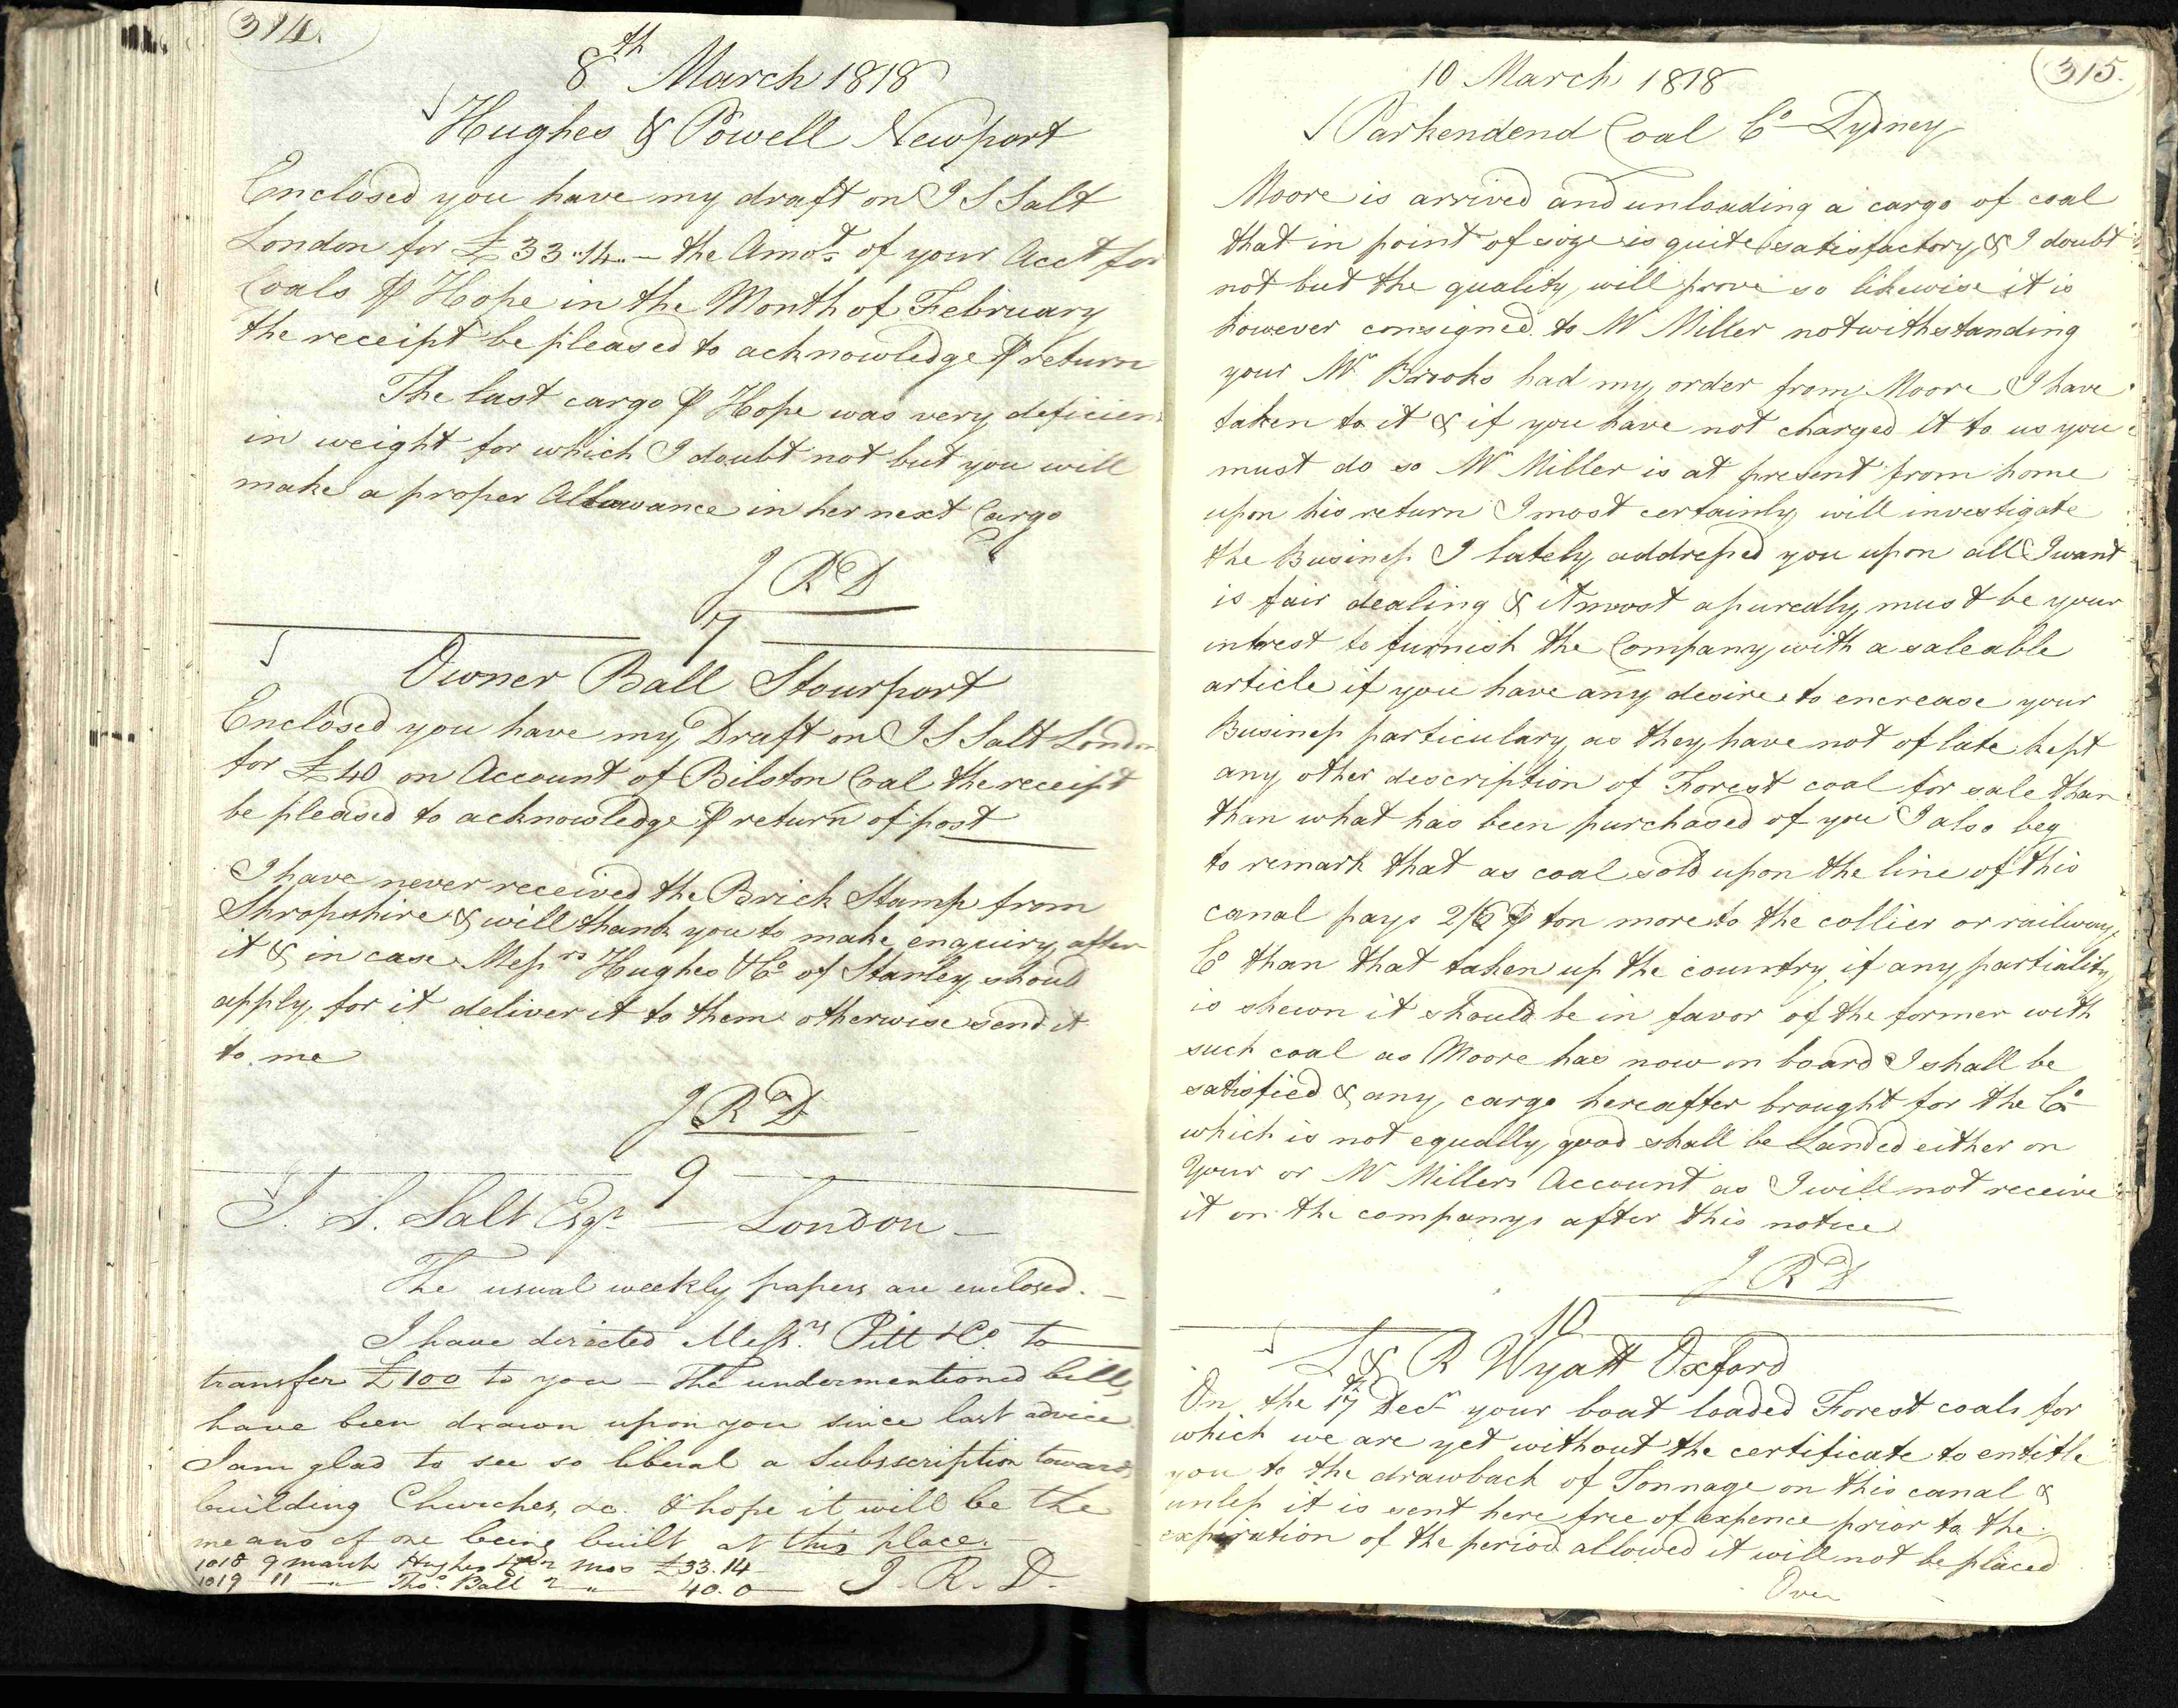 314.
8th March 1818
Hughes & Powell Newport
Enclosed you have my draft on I S Salt
London for £33.14.– the Amot. of your Acct for
Coals ⅌ Hope in the Month of Februiary
the receipt be pleased to acknowledge ⅌ return
The last cargo ⅌ Hope was very deficient
in weight for which I doubt not but you will
make a proper Allowance in her next Cargo
J R D
7
Owner Ball Stourport
Enclosed you have my Draft on I S Salt London
for £40 on Account of Bilston Coal the receipt
be pleased to acknowledge ⅌ return of post
I have never received the Brick Stamp from
Shropshire & will thank you to make enquiry after
it & in case Messrs Hughes & Co of Stanley should
apply for it deliver it to them otherwise send it
to me
J R D
9
I. S. Salt Esqr. – London –
The usual weekly papers are enclosed. –
I have directed Messrs. Pitt & Co. to
transfer £100 to you – The undermentioned bills
have been drawn upon you since last advice
I am glad to see so liberal a Subsscription towards
building Churches, &c. & hope it will be the
means of one being built at this place. –
1018 9 march Hughes & Co 2 mos £33.14
1019 11 – " – Thos. Ball 2 – " 40.0 – J. R. D.
315.
10 March 1818
Parkendend Coal Co Lydney
Moore is arrived and unloading a cargo of coal
that in point of size is quite satisfactory & I doubt
not but the quality will prove so likewise it is
however consigned to Mr Miller notwithstanding
your Mr Brooks had my order from Moore I have
taken to it & if you have not charged it to us you
must do so Mr Miller is at present from home
upon his return I most certainly will investigate
the Business I lately addressed you upon all I want
is fair dealing & it most assuredly must be your
intrest to furnish the Company with a saleable
article if you have any desire to encrease your
Business particulary as they have not of late kept
any other description of Forest coal for sale than
than what has been purchased of you I also beg
to remark that as coal sold upon the line of this
canal pays 2/6 ⅌ ton more to the collier or railway
Co than that taken up the country if any partiality
is shewn it should be in favor of the former with
such coal as Moore has now on board I shall be
satisfied & any cargo hereafter brought for the Co
which is not equally good shall be Landed either on
Your or Mr Millers Account as I will not receive
it on the companys after this notice
J R D
10
L & R Wyatt Oxford
On the 17th Decr your boat loaded Forest coals for
which we are yet without the certificate to entitle
you to the drawback of Tonnage on this canal &
unless it is sent here free of expence prior to the
expiration of the period allowed it will not be placed
Over